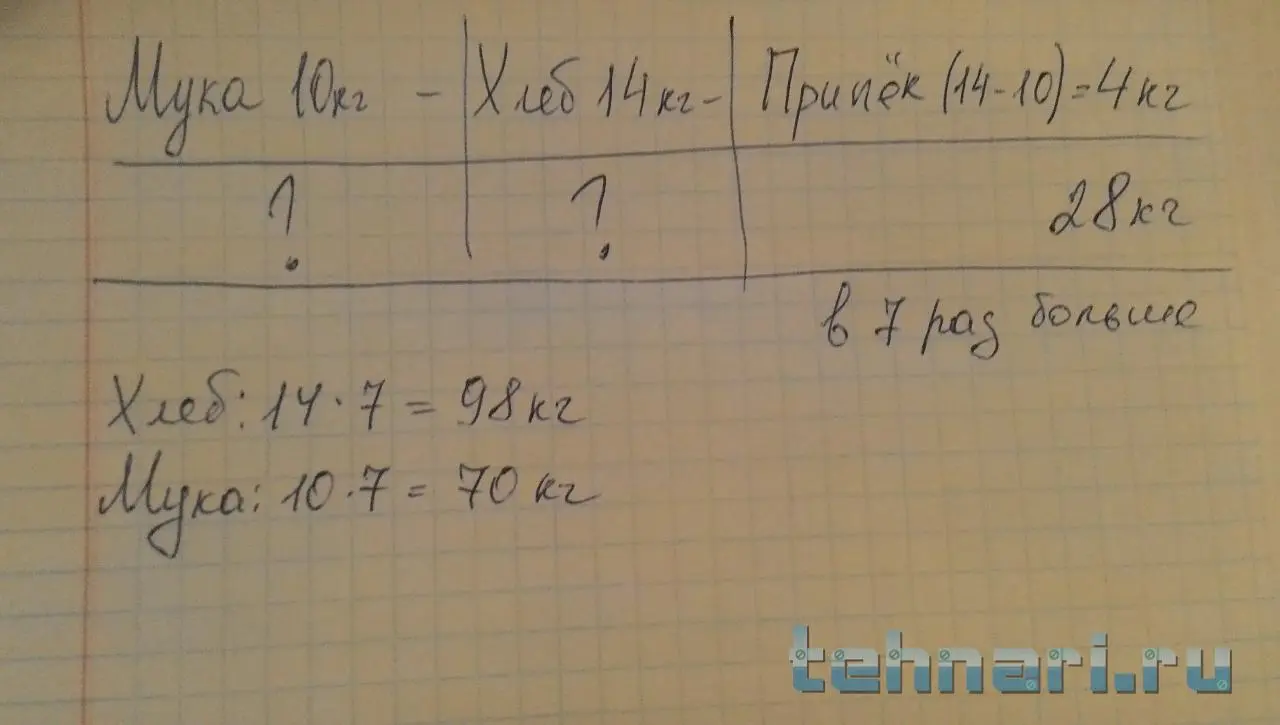 Мука 10кг - Хлеб 14кг- Припёк (14-10)=4кг
? ? 28кг
в 7 раз больше
Хлеб: 14·7 = 98кг
Мука: 10·7 = 70 кг
tehnari.ru